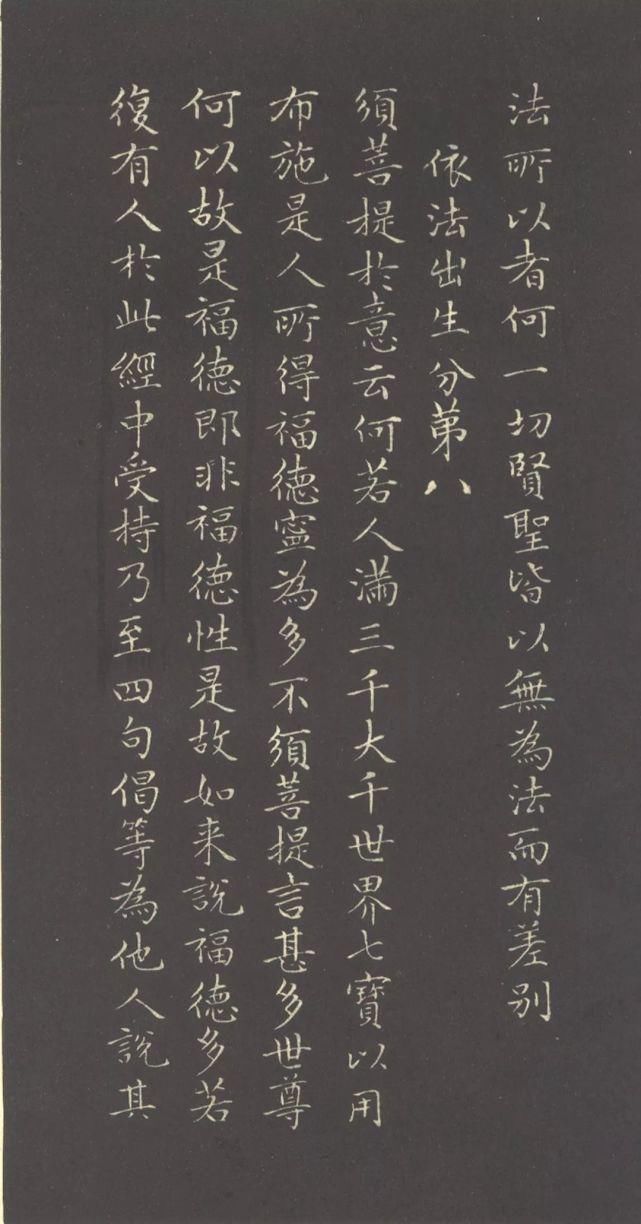 法所以者何一切賢聖皆以無為法而有差別
依法出生分第八
須菩提於意云何若人滿三千大千世界七寶以用
布施是人所得福德寧為多不須菩提言甚多世尊
何以故是福德即非福德性是故如来說福德多若
復有人於此經中受持乃至四句偈等為他人說其